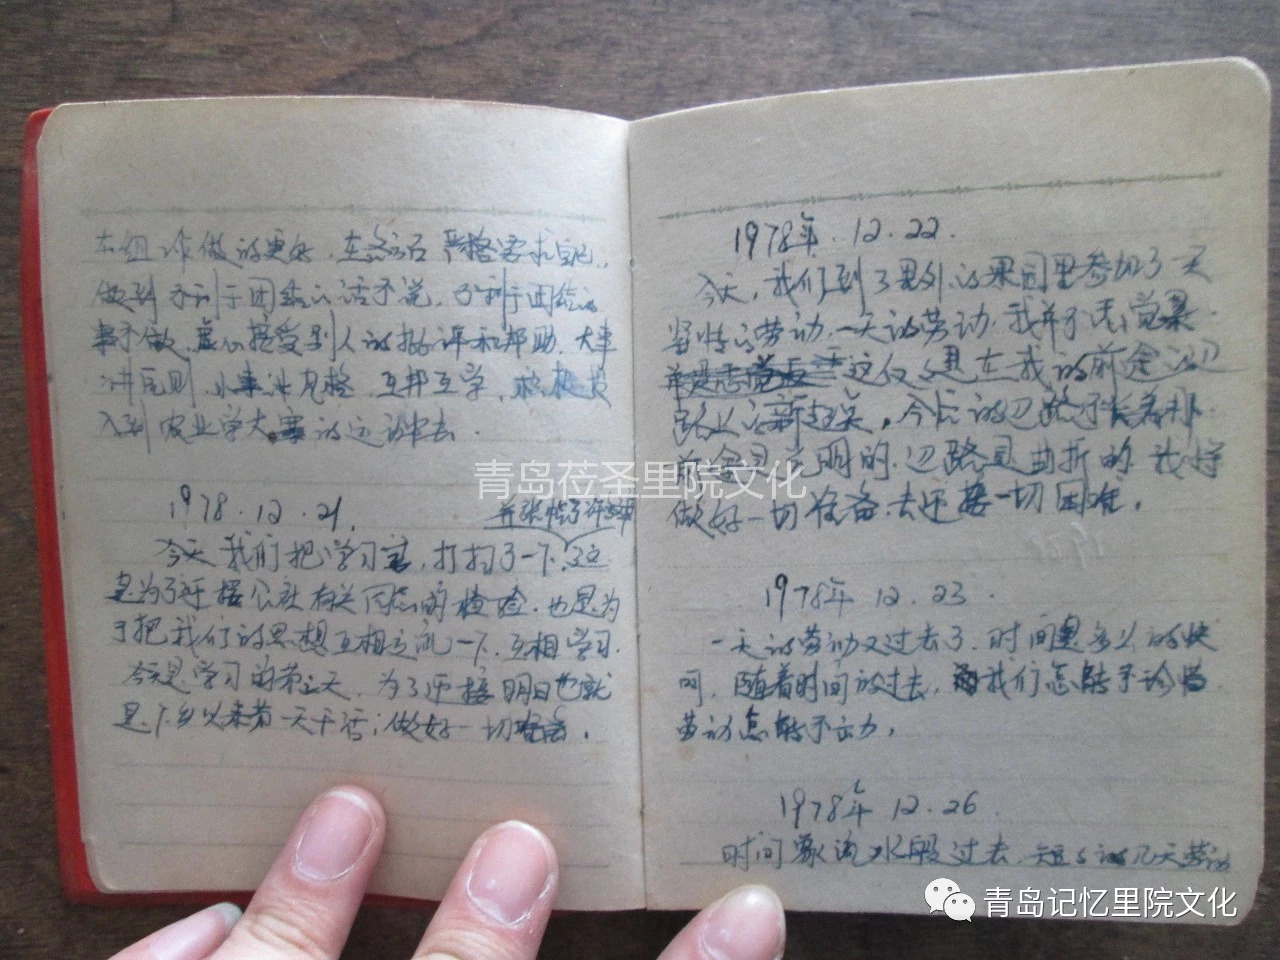 工作做的更好,在今后严格要求自己,
做到不利于团结的话不说,不利于团结的
事不做,虚心接受别人的批评和帮助,大事
讲原则,小事讲风格,互帮互学,积极投
入到农业学大寨的运动中去.
1978.12.21.
今天我们把学习室,打扫了一下,这
是为了迎接公社有关同志的检验.也是为
了把我们的思想互相交流一下,互相学习.
今天是学习的第三天,为了迎接明日也就
是下乡以来第一天干活,做好一切准备.
青岛莅圣里院文化
1978年.12.22.
今天,我们到了里外的果园里参加了一天
紧性的劳动.一天的劳动,我并不话觉累.
这仅仅是在我的前途的
路上的新起点,今后的边路
前途是光明的.边路是曲折的.我将
做好一切准备去迎接一切困难.
1978年 12.23.
一天的劳动又过去了,时间是多么的快
啊,随着时间的过去,我们怎能不珍惜
劳动怎能不出力,
1978年 12.26.
时间象流水般过去,短短的几天劳动
青岛记忆里院文化